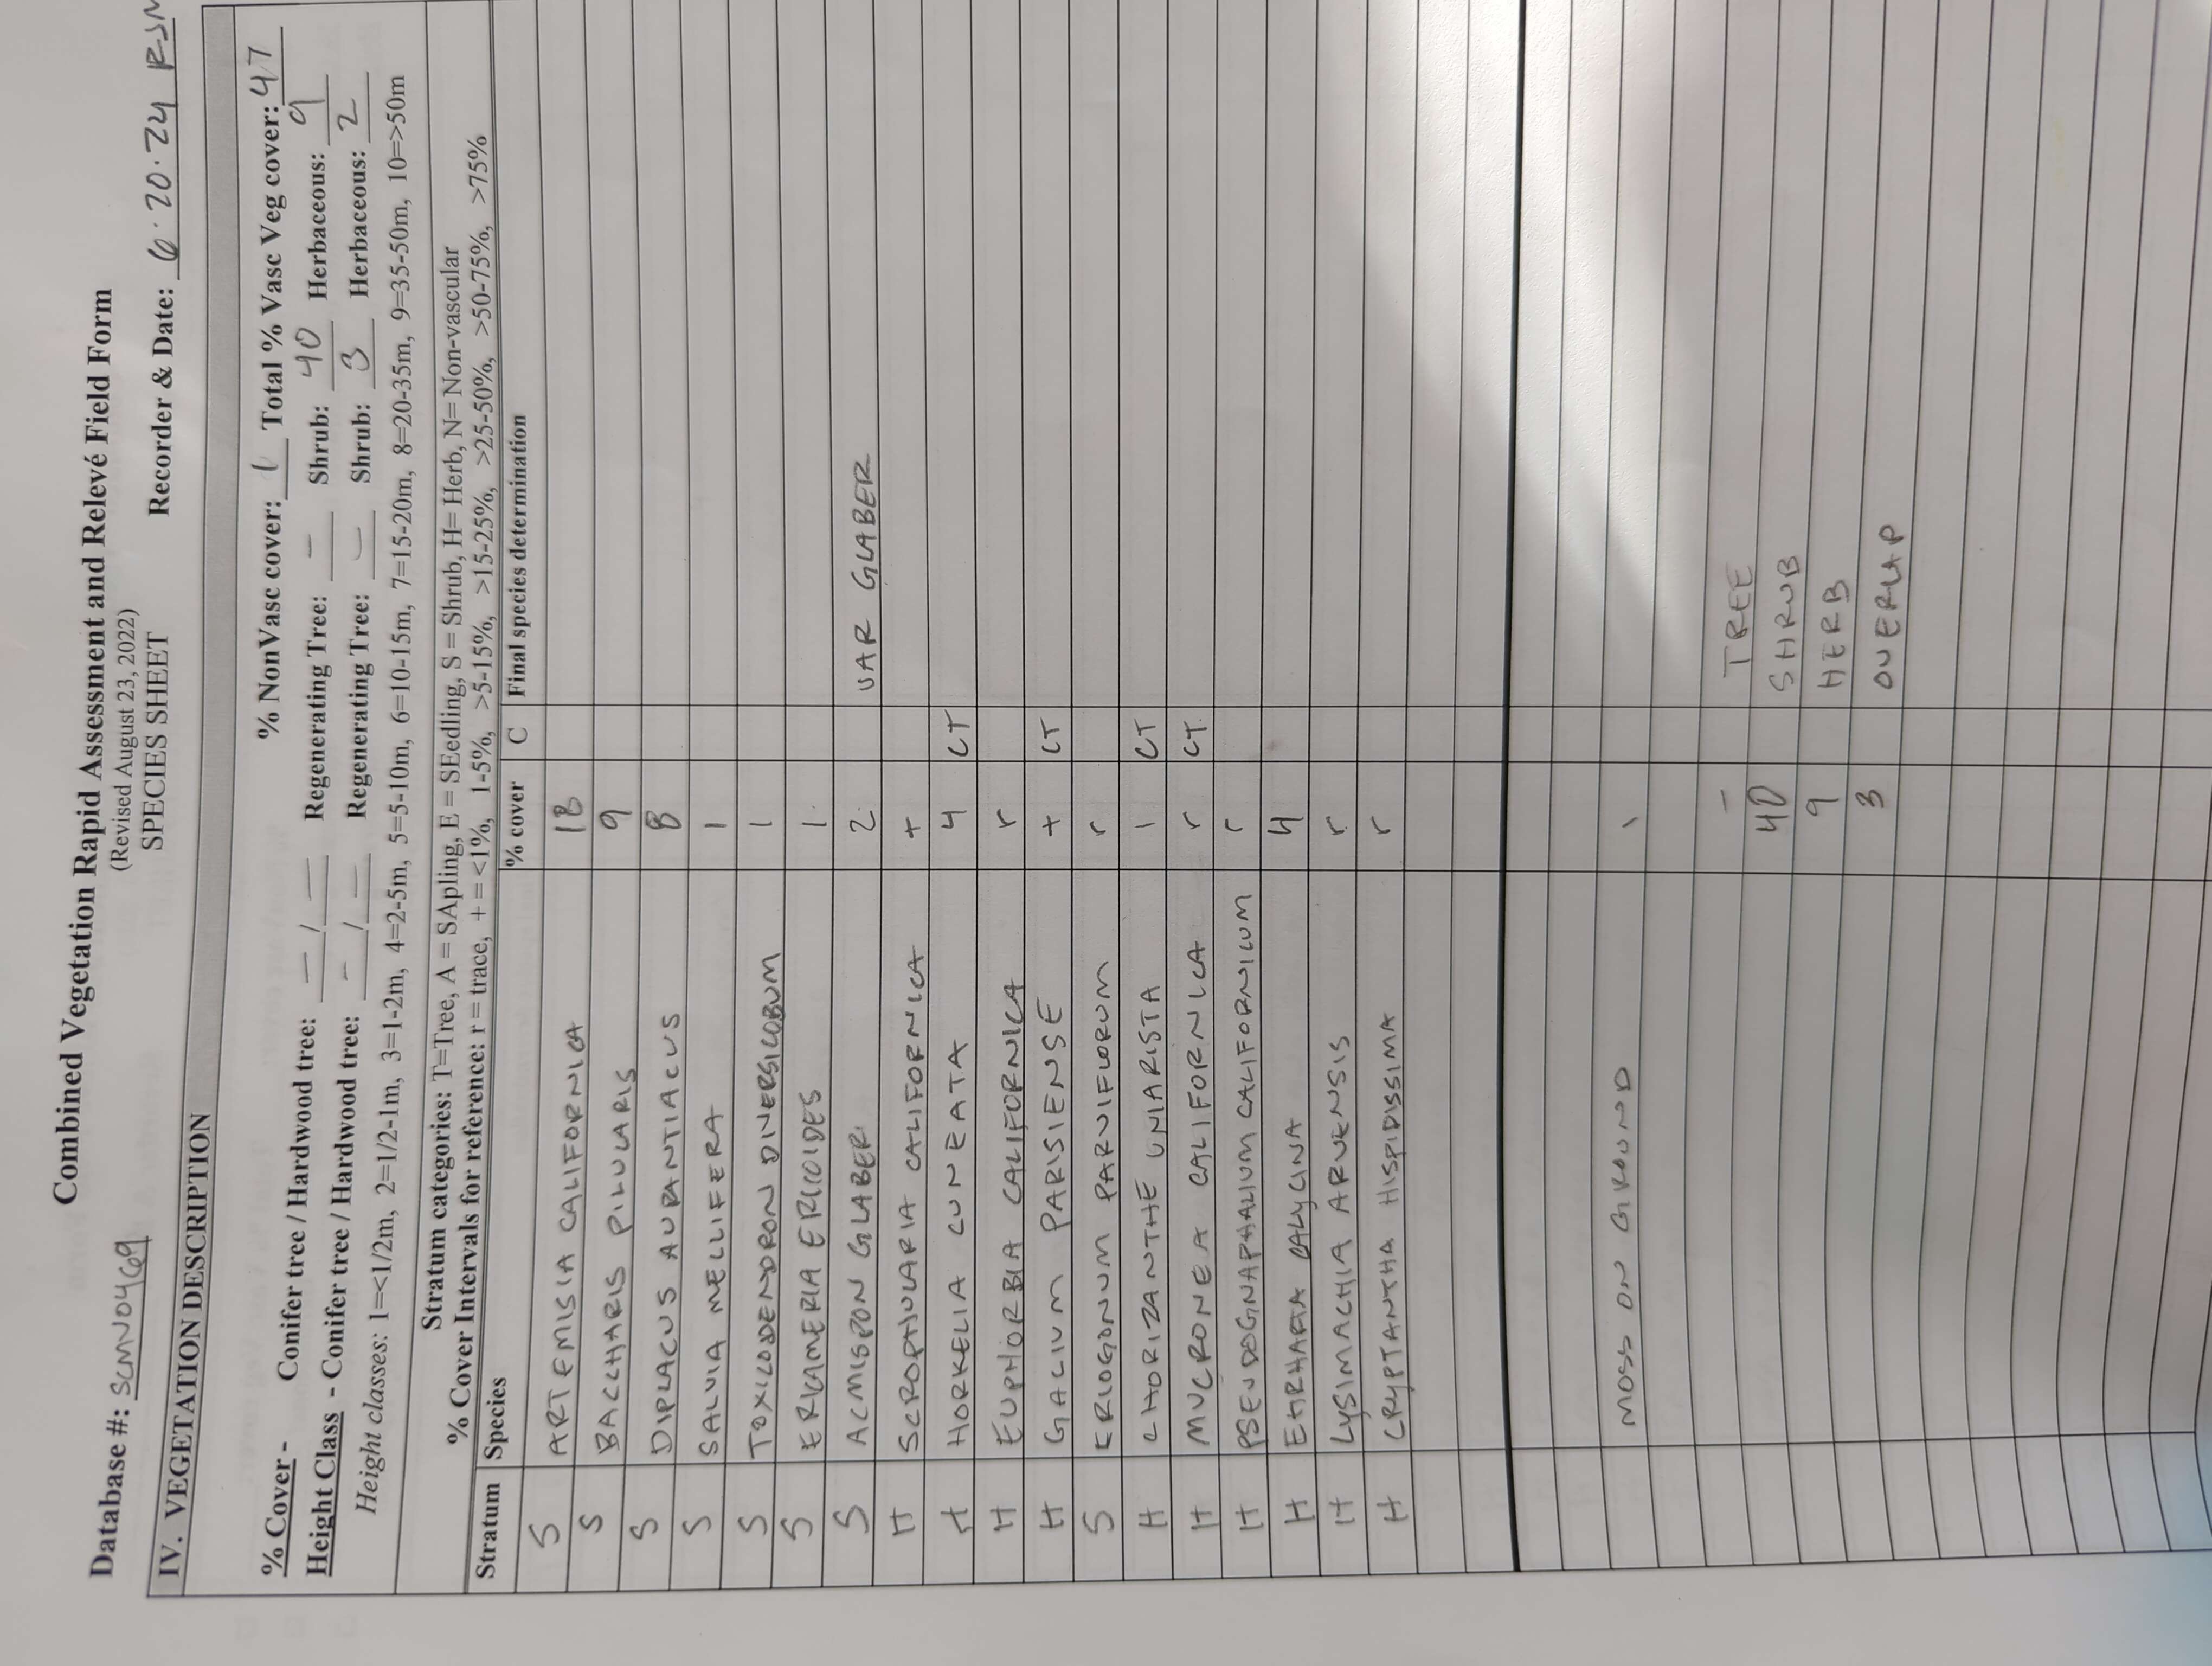 Combined Vegetation Rapid Assessment and Relevé Field Form
(Revised August 23, 2022)
SPECIES SHEET
Database #: SCMN0469 Recorder & Date: 6·20·24 RJM
IV. VEGETATION DESCRIPTION
% NonVasc cover: 1 Total % Vasc Veg cover: 47
% Cover - Conifer tree / Hardwood tree: — / — Regenerating Tree: — Shrub: 40 Herbaceous: 9
Height Class - Conifer tree / Hardwood tree: — / — Regenerating Tree: — Shrub: 3 Herbaceous: 2
Height classes: 1=<1/2m, 2=1/2-1m, 3=1-2m, 4=2-5m, 5=5-10m, 6=10-15m, 7=15-20m, 8=20-35m, 9=35-50m, 10=>50m
Stratum categories: T=Tree, A = SApling, E = SEedling, S = Shrub, H= Herb, N= Non-vascular
% Cover Intervals for reference: r = trace, + = <1%, 1-5%, >5-15%, >15-25%, >25-50%, >50-75%, >75%
Stratum Species % cover C Final species determination
S ARTEMISIA CALIFORNICA 18
S BACCHARIS PILULARIS 9
S DIPLACUS AURANTIACUS 8
S SALVIA MELLIFERA 1
S TOXICODENDRON DIVERSILOBUM 1
S ERICAMERIA ERICOIDES 1
S ACMISPON GLABER 2 VAR GLABER
H SCROPHULARIA CALIFORNICA +
H HORKELIA CUNEATA 4 CT
H EUPHORBIA CALIFORNICA r
H GALIUM PARISIENSE + CT
S ERIOGONUM PARVIFLORUM r
H CHORIZANTHE UNIARISTA 1 CT
H MUCRONEA CALIFORNICA r CT
H PSEUDOGNAPHALIUM CALIFORNICUM r
H EHRHARTA CALYCINA 4
H LYSIMACHIA ARVENSIS r
H CRYPTANTHA HISPIDISSIMA r
MOSS ON GROUND 1
— TREE
40 SHRUB
9 HERB
3 OVERLAP